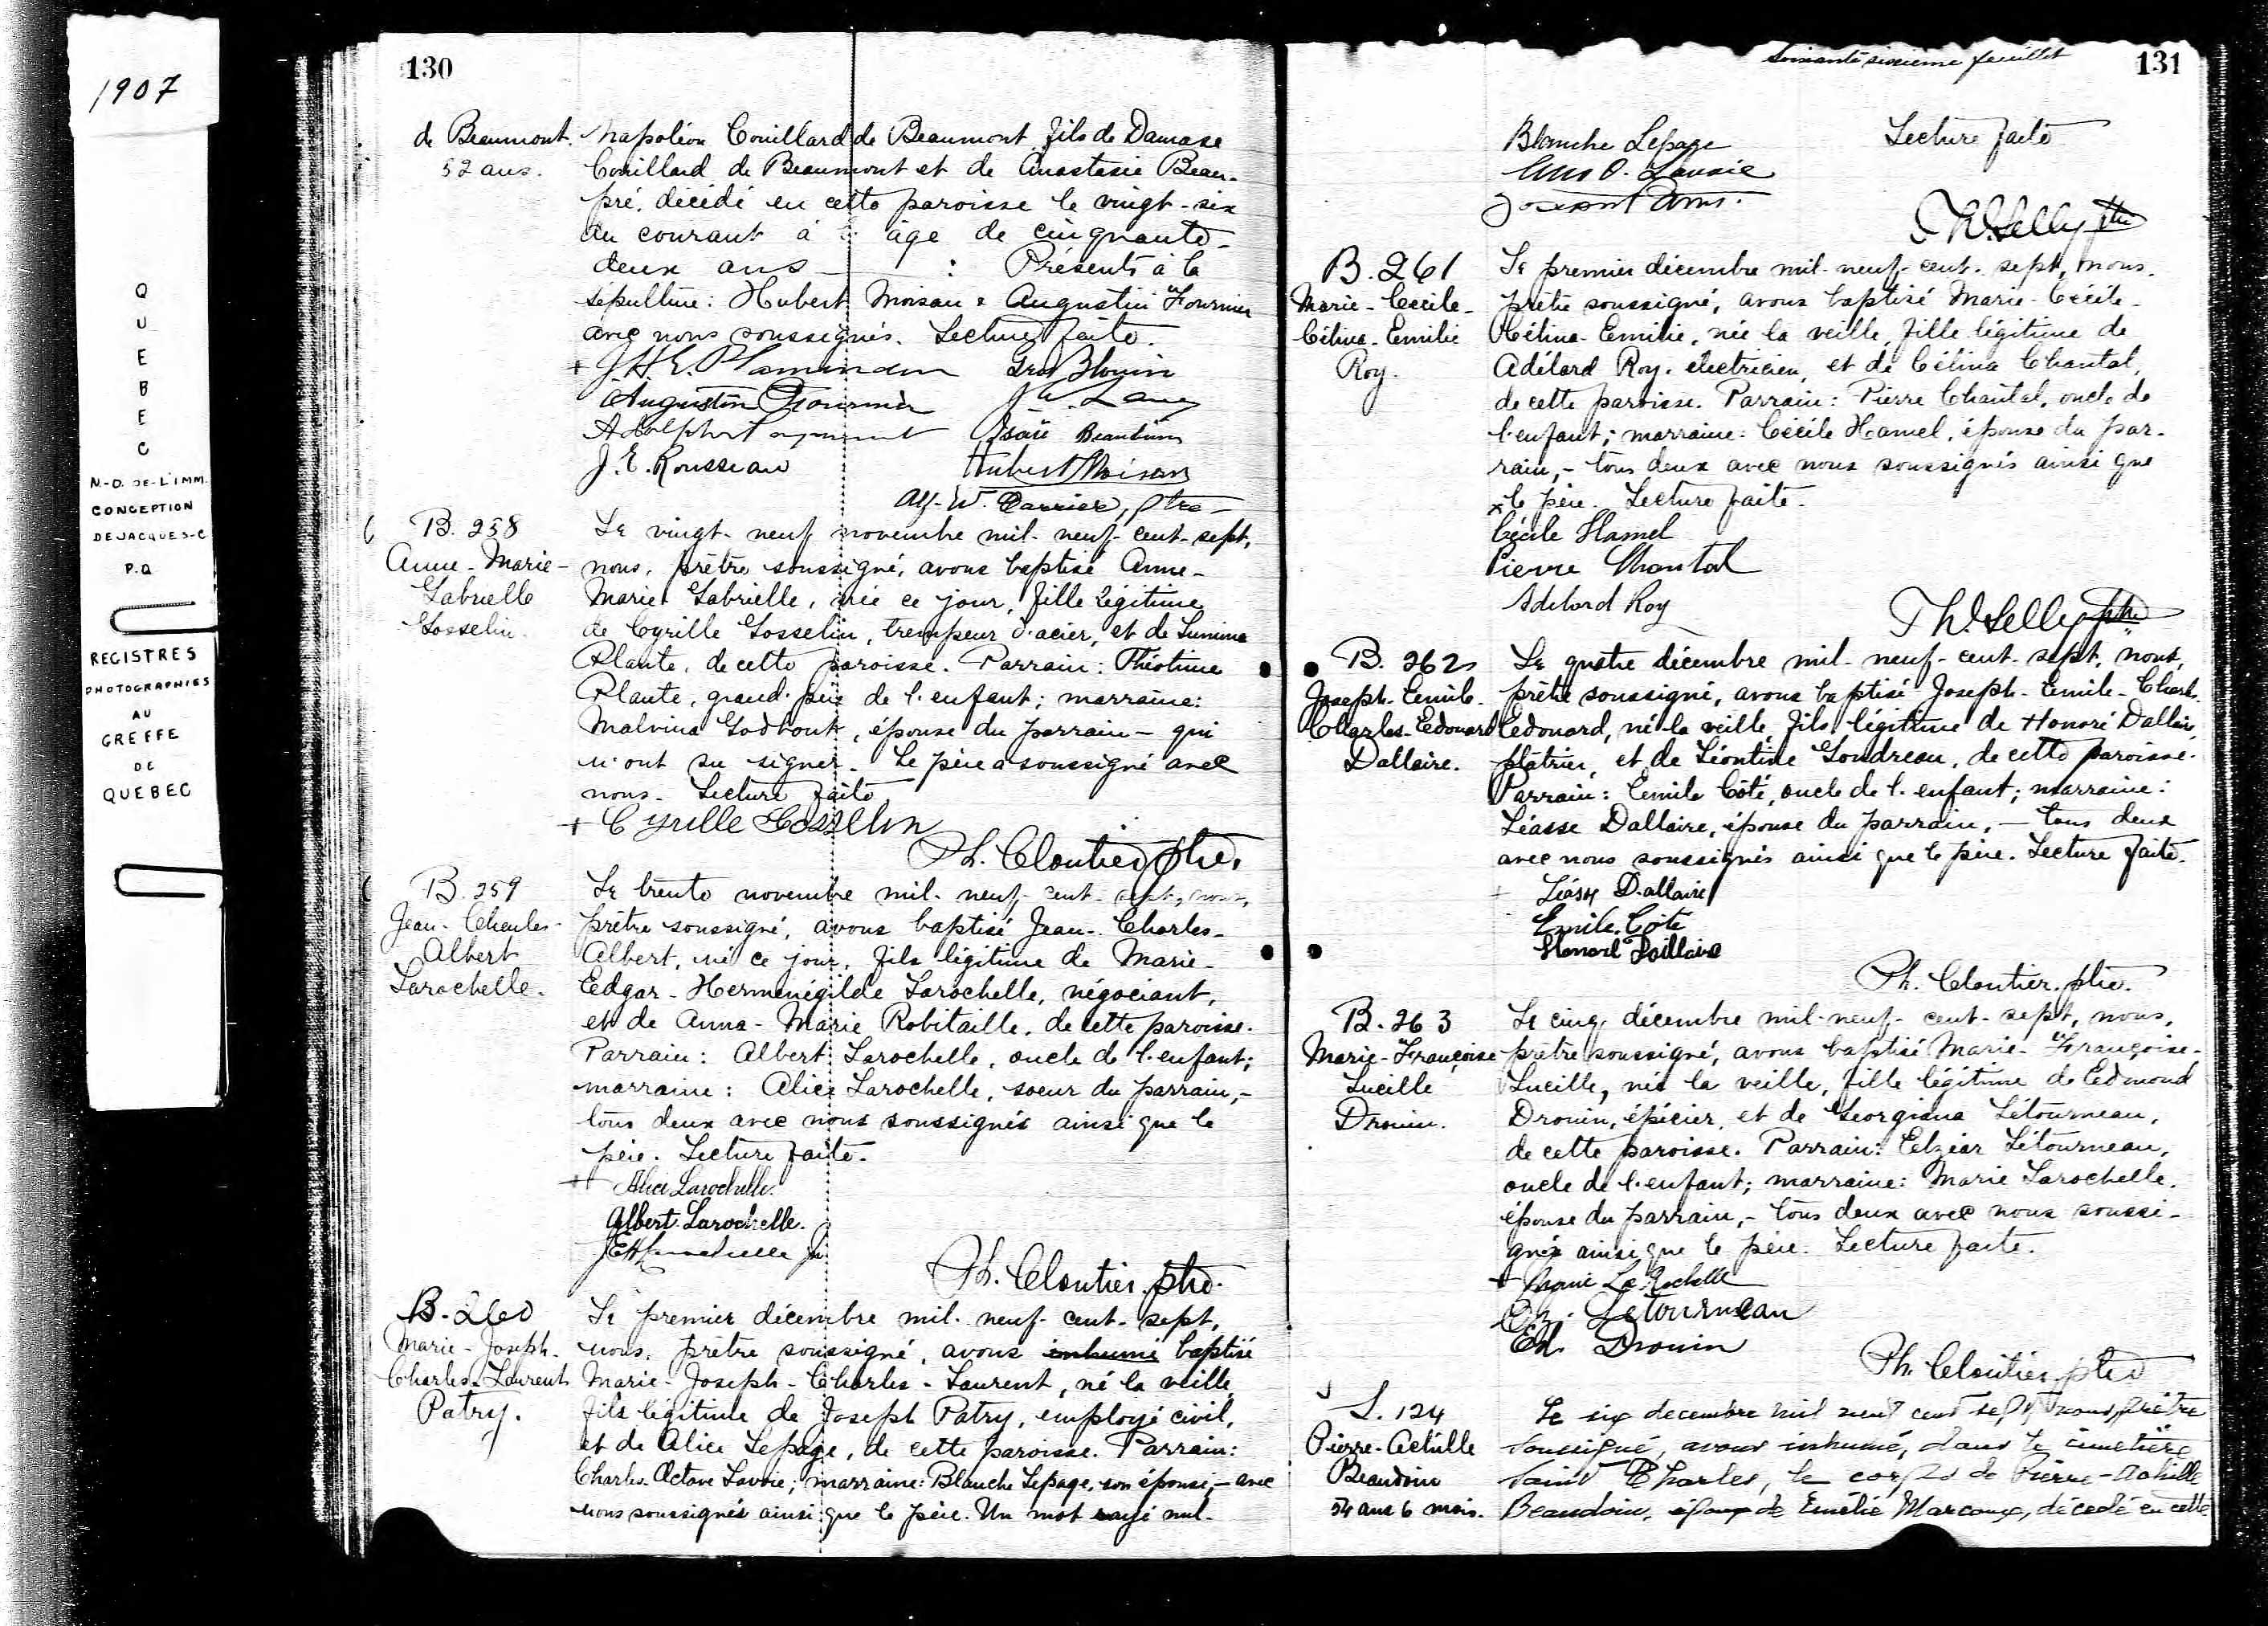 1907
QUEBEC
N.-D. DE-L'IMM.
CONCEPTION
DE JACQUES-C
P.Q
REGISTRES
PHOTOGRAPHIES
AU
GREFFE
DE
QUEBEC
130
de Beaumont.
52 ans.
Napoléon Couillard de Beaumont, fils de Damase
Couillard de Beaumont et de Anastasie Beau-
pré, décédé en cette paroisse le vingt-six
du courant à âge de cinquante-
deux ans : Présents à la
sépulture: Hubert Moisan & Augustin Fournier
avec nous soussignés. Lecture faite.
+ J.H.E. Plamondon Geo Blouin
Augustin Fournier
Adolphe Isaïe Beaudoin
J. E. Rousseau Hubert Moisan
Alf. W. Carrier, Ptre
B. 258
Anne-Marie-
Gabrielle
Gosselin.
Le vingt-neuf novembre mil-neuf-cent-sept,
nous, prêtre soussigné, avons baptisé Anne-
Marie Gabrielle, née ce jour, fille légitime
de Cyrille Gosselin, trempeur d'acier, et de Lumina
Plante, de cette paroisse. Parrain: Théotime
Plante, grand-père de l'enfant; marraine:
Malvina Godbout, épouse du parrain - qui
n'ont su signer. Le père a soussigné avec
nous. Lecture faite
+ Cyrille Gosselin
Ph. Cloutier ptre.
B. 259
Jean-Charles-
Albert
Larochelle.
Le trente novembre mil-neuf-cent-sept, nous,
prêtre soussigné, avons baptisé Jean-Charles-
Albert, né ce jour, fils légitime de Marie-
Edgar-Herménégilde Larochelle, négociant,
et de Anna-Marie Robitaille, de cette paroisse.
Parrain: Albert Larochelle, oncle de l'enfant;
marraine: Alice Larochelle, soeur du parrain,-
tous deux avec nous soussignés ainsi que le
père. Lecture faite.
+ Alice Larochelle.
Albert Larochelle.
JEH Larochelle Jr
Ph. Cloutier ptre.
B. 260
Marie-Joseph-
Charles-Laurent
Patry.
Le premier décembre mil-neuf-cent-sept,
nous, prêtre soussigné, avons inhumé baptisé
Marie-Joseph-Charles-Laurent, né la veille,
fils légitime de Joseph Patry, employé civil,
et de Alice Lepage, de cette paroisse. Parrain:
Charles-Octave Lavoie; marraine: Blanche Lepage, son épouse,- avec
nous soussignés ainsi que le père. Un mot rayé nul.
Soixante sixième feuillet
131
Blanche Lepage Lecture faite
O. Lavoie
B. 261
Marie-Cécile-
Célina-Emilie
Roy.
Le premier décembre mil-neuf-cent-sept, nous,
prêtre soussigné, avons baptisé Marie-Cécile-
Célina-Emilie, née la veille, fille légitime de
Adélard Roy, électricien, et de Célina Chantal,
de cette paroisse. Parrain: Pierre Chantal, oncle de
l'enfant; marraine: Cécile Hamel, épouse du par-
rain,- tous deux avec nous soussignés ainsi que
x le père. Lecture faite.
Cécile Hamel
Pierre Chantal
Adélard Roy
B. 262
Joseph-Emile-
Charles-Edouard
Dallaire.
Le quatre décembre mil-neuf-cent-sept, nous,
prêtre soussigné, avons baptisé Joseph-Emile-Charles
Edouard, né la veille, fils légitime de Honoré Dallaire,
plâtrier, et de Léontine Gondreau, de cette paroisse.
Parrain: Emile Côté, oncle de l'enfant; marraine:
Léasse Dallaire, épouse du parrain, - tous deux
avec nous soussignés ainsi que le père. Lecture faite.
+ Léasse Dallaire
Emile Côté
Honoré Dallaire
Ph. Cloutier. ptre.
B. 263
Marie-Françoise
Lucille
Drouin.
Le cinq décembre mil-neuf-cent-sept, nous,
prêtre soussigné, avons baptisé Marie-Françoise-
Lucille, née la veille, fille légitime de Edmond
Drouin, épicier, et de Georgiana Létourneau,
de cette paroisse. Parrain: Elzéar Létourneau,
oncle de l'enfant; marraine: Marie Larochelle,
épouse du parrain,- tous deux avec nous soussi-
gnés ainsi que le père. Lecture faite.
+ Marie La Rochelle
Elz. Letourneau
Ed. Drouin
Ph. Cloutier ptre
S. 124
Pierre-Achille
Beaudoin
54 ans 6 mois.
Le six decembre mil neuf cent sept, nous, prêtre
soussigné, avons inhumé, dans le cimetière
Saint Charles, le corps de Pierre-Achille
Beaudoin, époux de Emélie Marcoux, décédé en cette